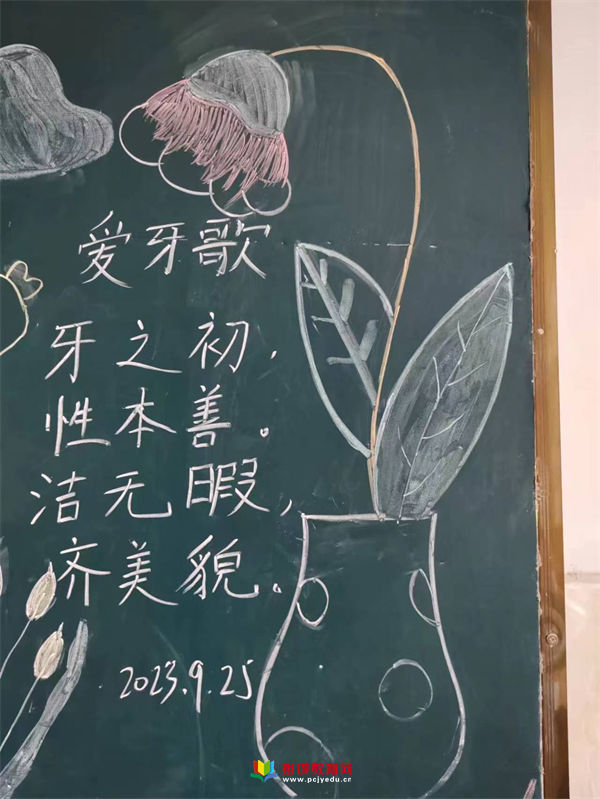 爱牙歌
牙之初，
性本善。
洁无暇，
齐美貌。
2023.9.25
www.pcjyedu.cn